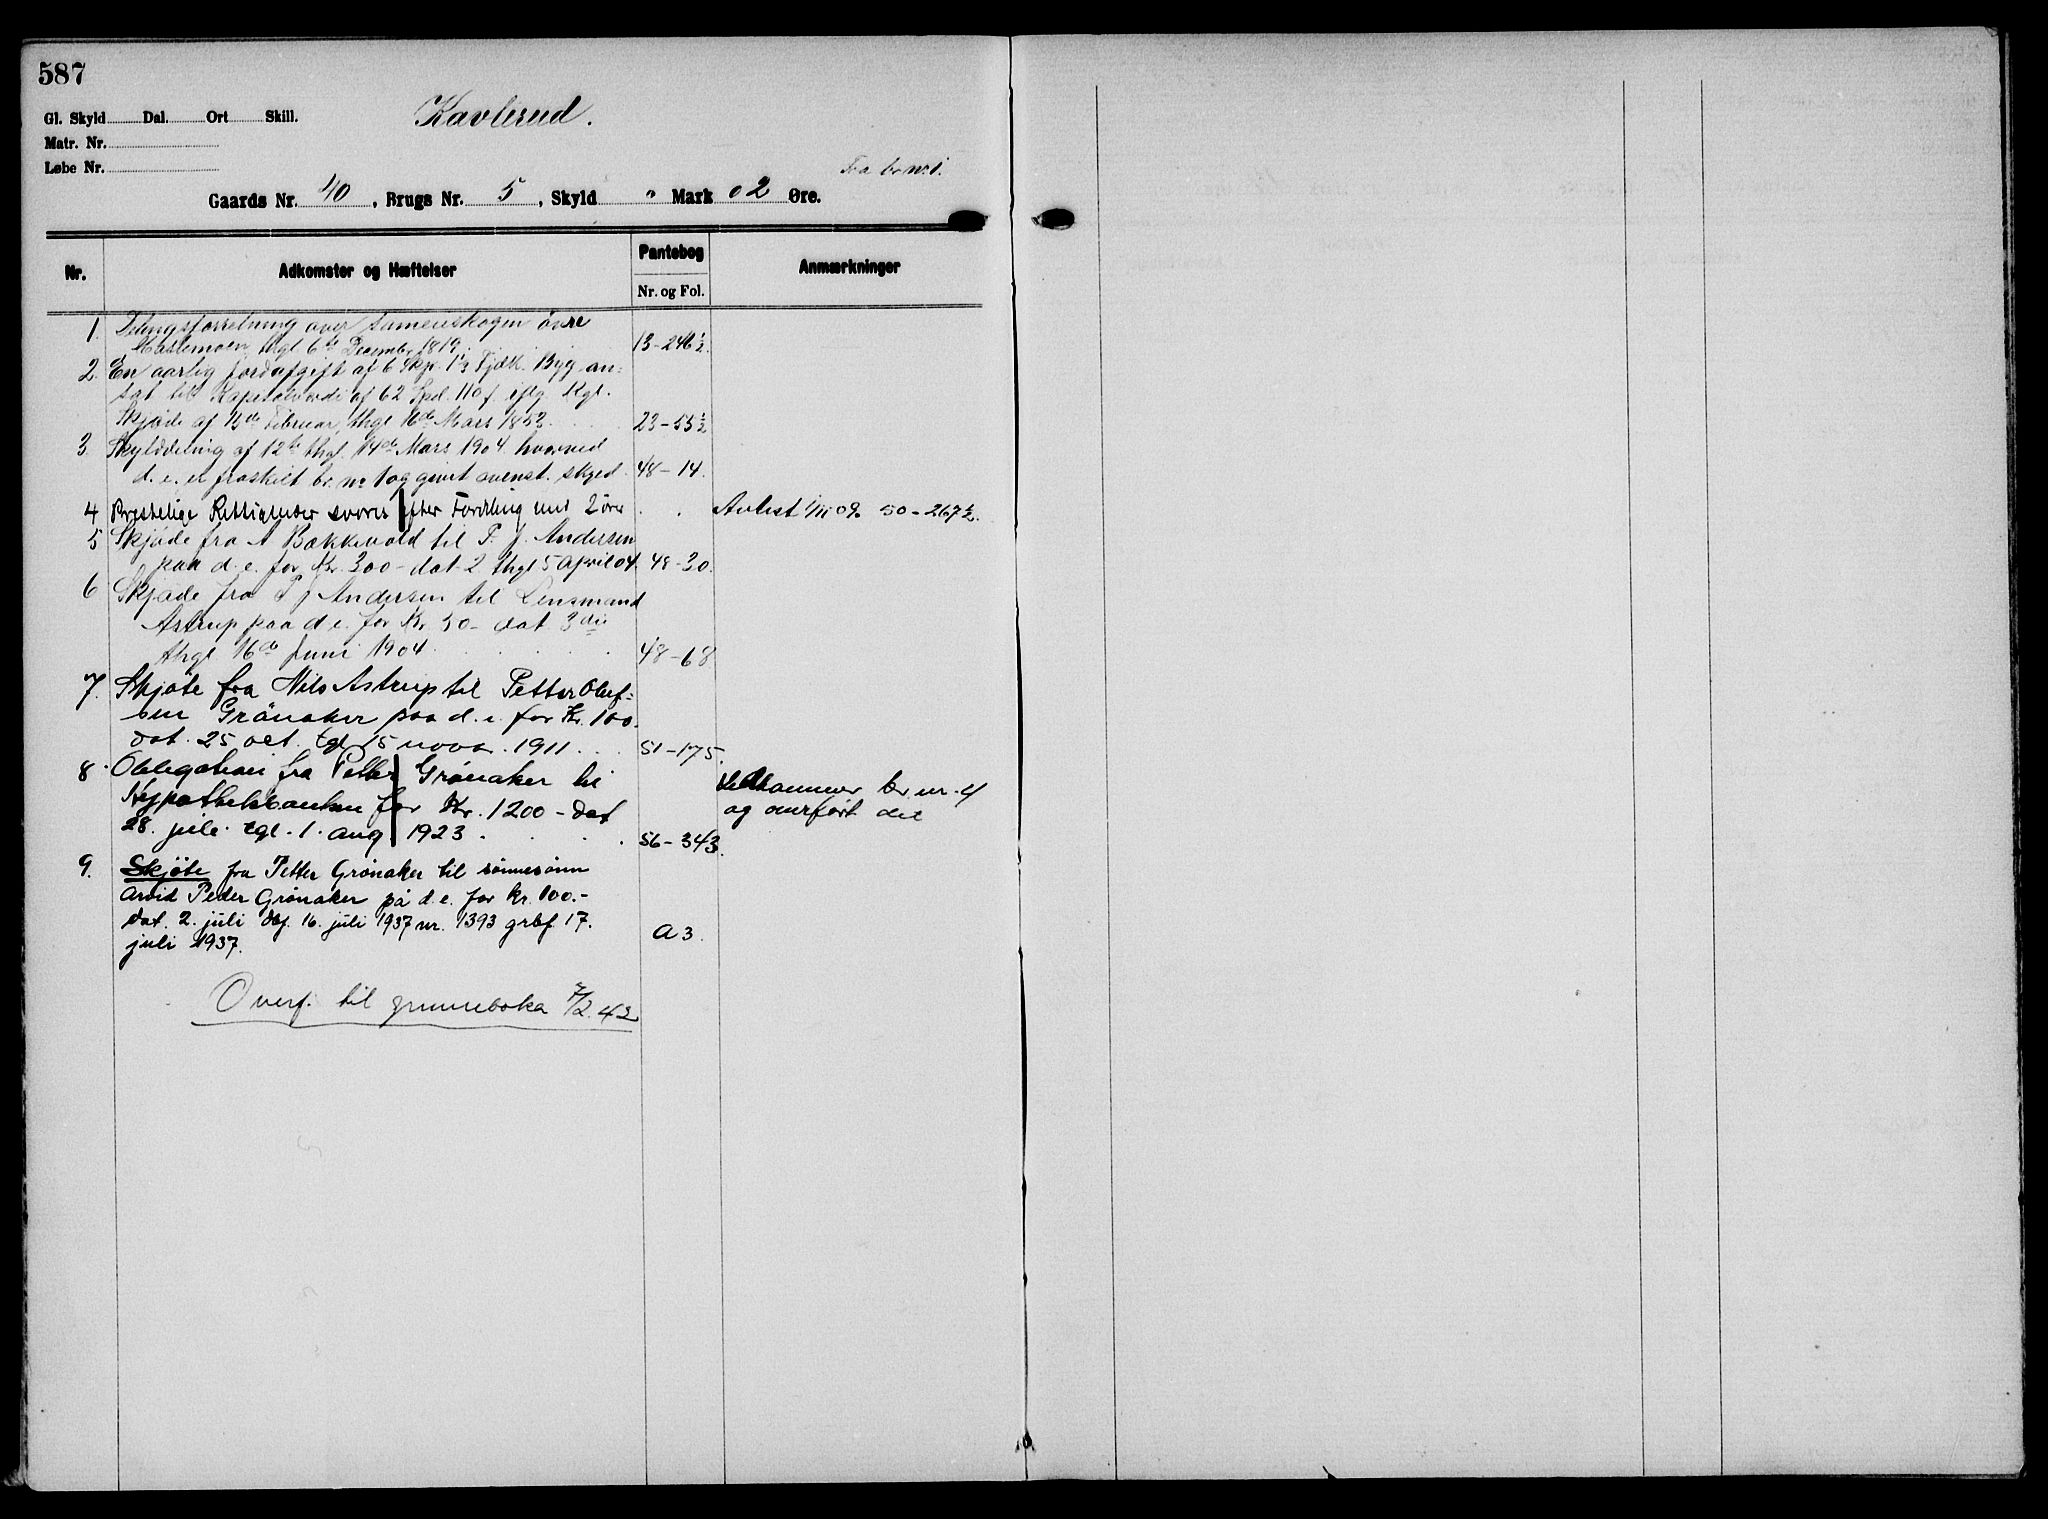 587
Gl. Skyld Dal. Ort Skill.
Kavlerud.
Matr. Nr.
Løbe Nr.
Fra br no 1.
Gaards Nr. 40, Brugs Nr. 5, Skyld " Mark 02 Øre.
Nr. Adkomster og Hæftelser Pantebog Nr. og Fol. Anmærkninger
1. Delingsforretning over Sameieskogen övre
thgl 6te Decembr 1819. 13-246½.
2. En aarlig Jordafgift af 6 Skp. 1⅓ Fjdk. Byg an-
sat til Kapitalværdi af 62 Spd. 110 f. iflg. Kgl.
Skjøde af Februar, thgl 16de Mars 1853. 23-55½
3. Skylddeling af 12te thgl. 14de Mars 1904 hvorved
d. e. er fraskilt br. no 1 og gjort ovenst. skyld. 48-14.
4. Prestelige Rettigheder svares efter Fordeling med 2 öre . . Avløst 09. 50-267½.
5 Skjøde fra A Bækkevold til P. J. Andersen
paa d. e. for Kr. 300- dat 2 thgl 5 April 04. 48-30.
6 Skjøde fra P J Andersen til Lensmand
Astrup paa d e. for Kr 50- dat. 3die
thgl 16de Juni 1904. 48-68
7. Skjøte fra Nils Astrup til Petter Oluf-
sen Grönaker paa d. e. for Kr. 100-
dat. 25 oct. tgl 15 novbr. 1911. . . 51-175.
8. Obligation fra Petter Grønaker til
Hypothekbanken for Kr. 1200- dat
28. juli. tgl. 1. aug 1923. . . . 56-343.
Vedkommer br. nr. 4
og overført der
9. Skjøte fra Petter Grønaker til sønnesønn
Arvid Peder Grønaker på d. e. for kr. 100.-
dat. 2. juli dbf. 16. juli 1937 nr. 1393 grbf 17.
juli 1937. A3.
Overf. til grunneboka 7/2.42